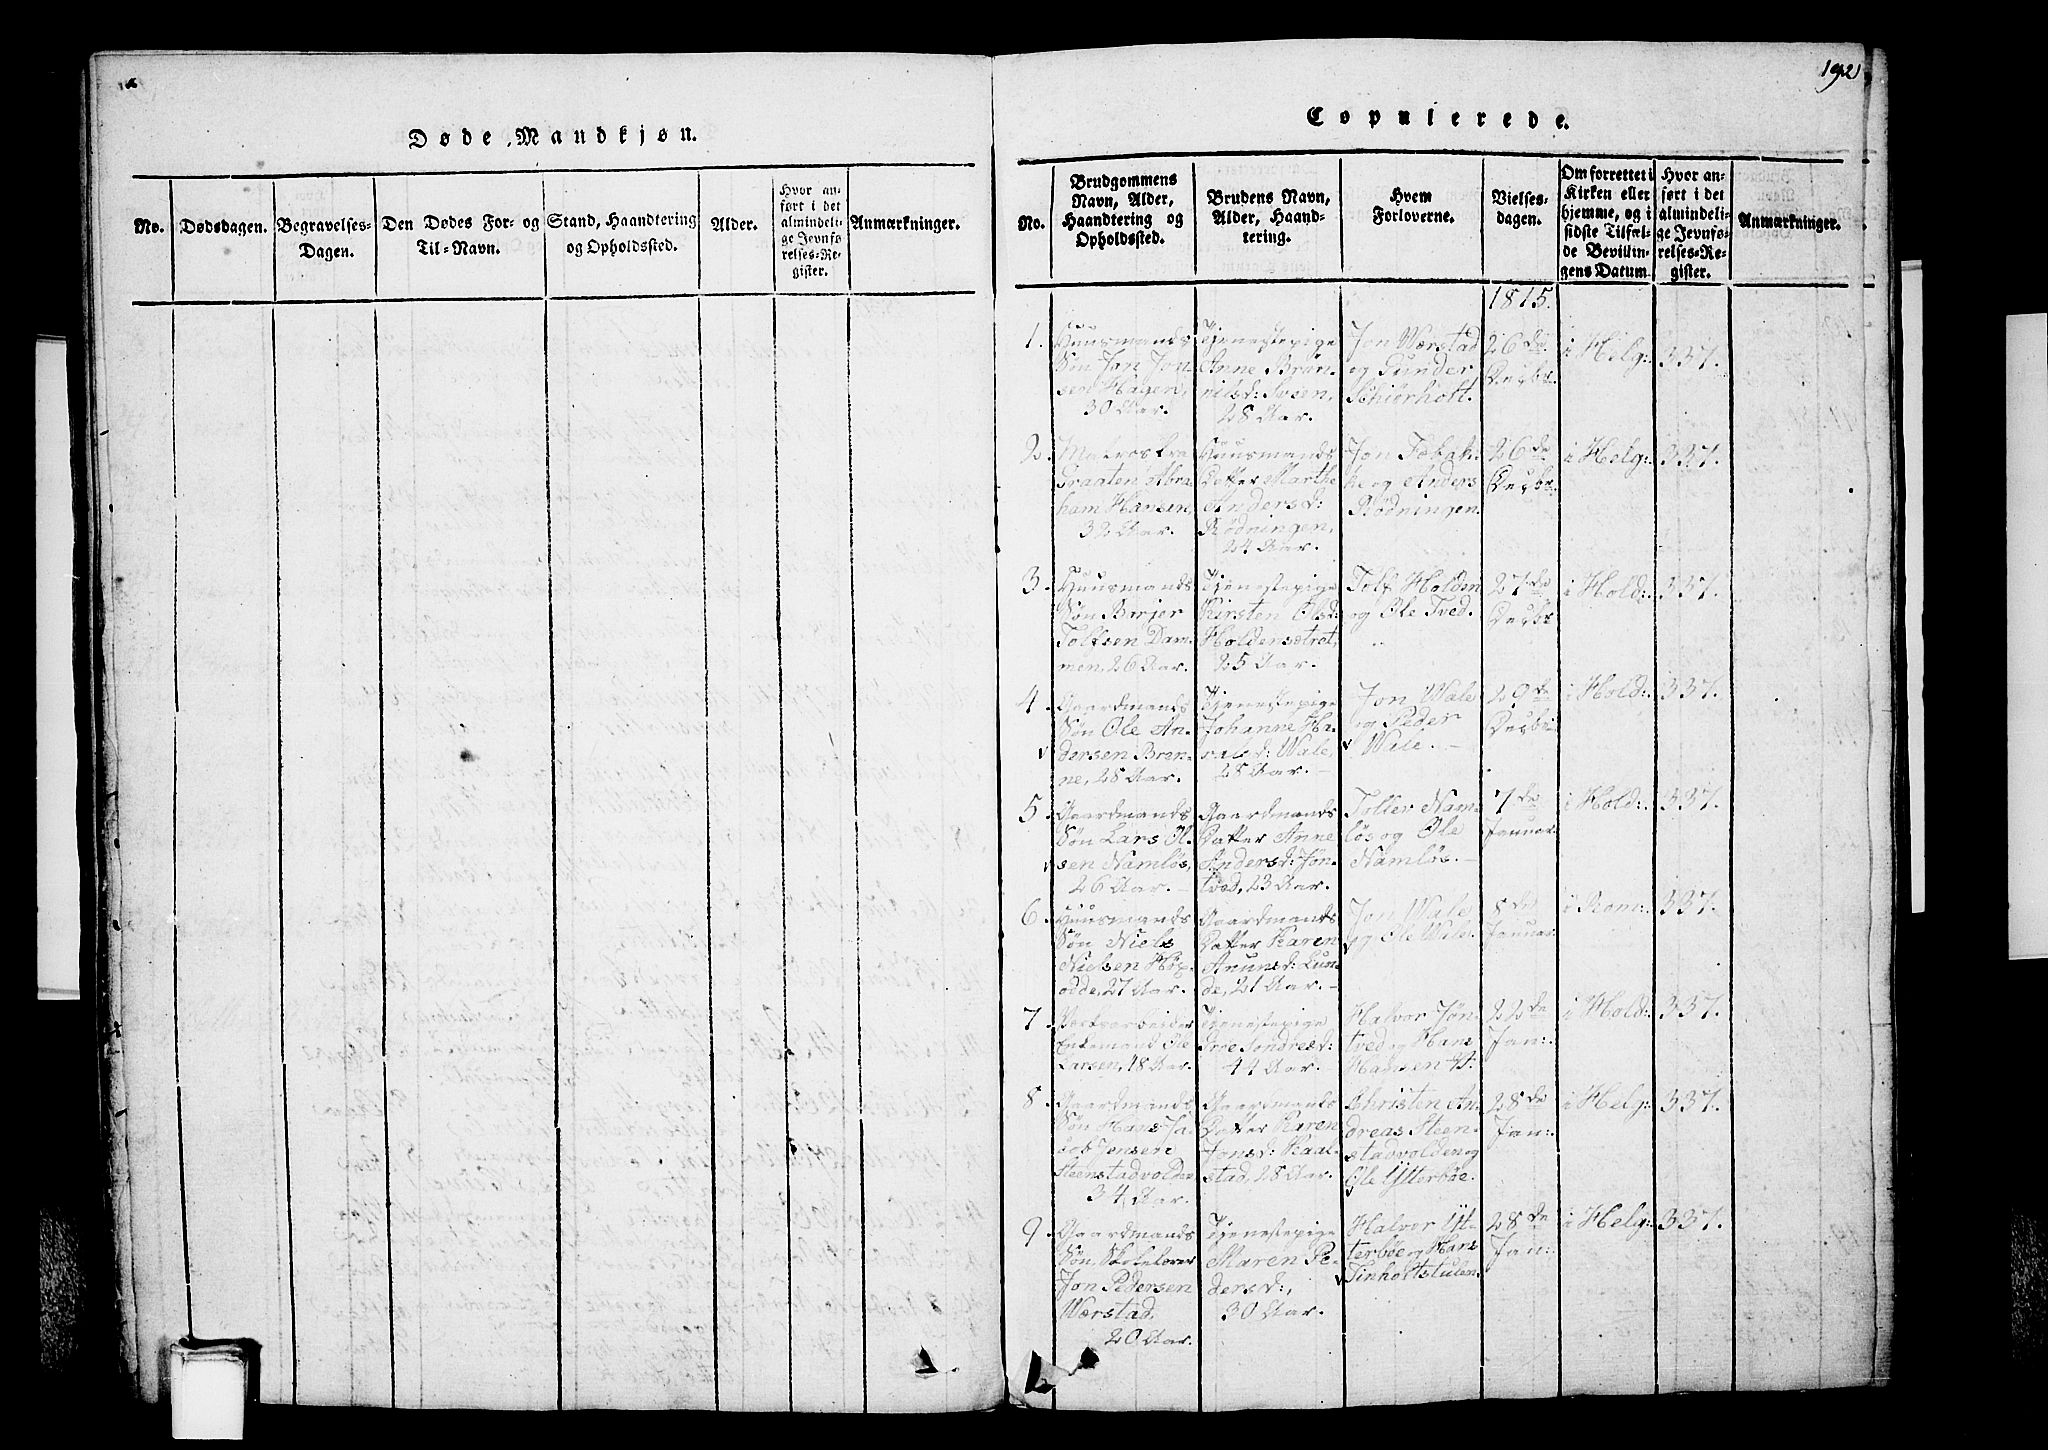 192
Døde Mandkjøn.
No.
Dødsdagen.
Begravelses-
Dagen.
Den Dødes For- og
Til-Navn.
Stand, Haandtering
og Opholdssted.
Alder.
Hvor an-
ført i det
almindeli-
ge Jevnfø
relses-Re-
gister.
Anmærkninger.
Copulerede.
No.
Brudgommens
Navn, Alder,
Haandtering og
Opholdssted.
Brudens Navn,
Alder, Haand-
tering.
Hvem
Forloverne.
Vielses-
dagen.
Om forrettet i
Kirken eller
hjemme, og i
sidste Tilfæl-
de Bevillin-
gens Datum
Hvor an-
ført i det
almindeli-
ge Jevnfø-
relses-Re-
gister.
Anmærkninger.
1815.
1.
Huusmands
Søn Jon Jon-
sen Hagen,
30 Aar.
Tjenestepige
Anne Brøn-
nilsd:
28 Aar.
Jon Værstad
og Gunder
Schierholt.
26de
Decbr.
i Helg:
337.
2.
Matros fra
Graaten Abra-
ham Hansen,
32 Aar.
Huusmands
Datter Marthe
Andersd:
Rødningen,
24 Aar.
Jon
og Anders
Rødningen.
26de
Decbr.
i Helg:
337.
3.
Huusmands
Søn Børjer
Tolfsen Dam-
men, 26 Aar.
Tjenestepige
Kirsten Olsd:
Holdersætret,
25 Aar.
Tolf Holden
og Ole Tved.
27de
Decbr
i Hold:
337.
4.
Gaardmands
Søn Ole An-
dersen Bren-
ne, 28 Aar.
Tjenestepige
Johanne Ha-
ralsd: Wale,
28 Aar.
Jon Wale
og Peder
Wale.
29de
Decbr
i Hold:
337.
5.
Gaardmands
Søn Lars Ol-
sen Namløs,
26 Aar.
Gaardmands
Datter Anne
Andersd: Jøn-
tved, 23 Aar.
Toller Nam-
løs og Ole
Namløs.
7de
Januar
i Hold:
337.
6.
Huusmands
Søn Niels
Nielsen Høy-
odde, 27 Aar.
Gaardmands
Datter Karen
Anunsd: Lun-
de, 21 Aar.
Jon Wale
og Ole Wale.
8de
Januar
i Rom:
337.
7.
Værksarbeider
Enkemand Ole
Larsen, 48 Aar.
Tjenestepige
Groe Sondresd:
44 Aar.
Halvor Jøn-
tved og Hans
Hansen
22de
Jan:
i Hold:
337.
8.
Gaardmands
Søn Hans Ja-
cob Jensen
Steenstadvolden
34 Aar.
Gaardmands
Datter Karen
Jonsd: Kaal-
stad, 28 Aar.
Christen An-
dreas Steen-
stadvolden og
Ole Ytterbøe.
28de
Jan:
i Helg:
337.
9.
Gaardmands
Søn, Skolelærer
Jon Pedersen
Værstad,
20 Aar.
Tjenestepige
Maren Pe-
dersd:,
30 Aar.
Halvor Yt-
terbøe og Hans
Tinholtstulen.
28de
Jan:
i Helg:
337.